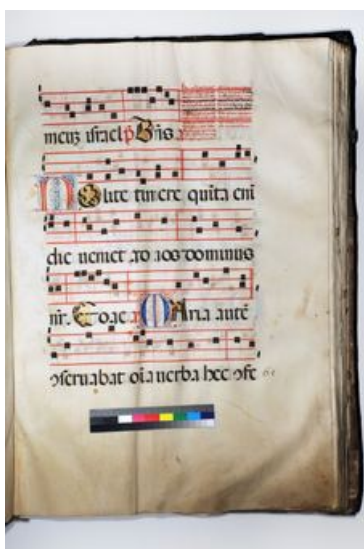 meuz israel p Bn̄s.
Nolite timere quīta enī
die ueniet ad uos dominus
nr̄. Euouae Maria autē
ↄseruabat oīa uerba hec ↄfe